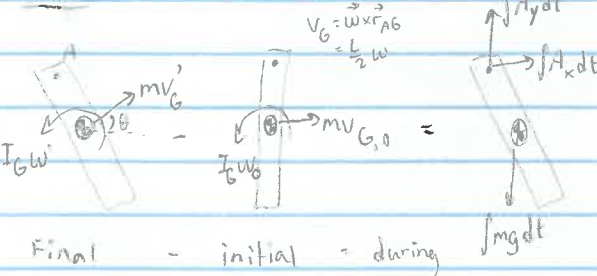 V_G = ω⃗ × r⃗_AG
= L/2 ω
∫A_y dt
A
∫A_x dt
mV_G'
θ
-
mV_G,0
=
I_G ω'
I_G ω_0
∫mg dt
Final - initial = during